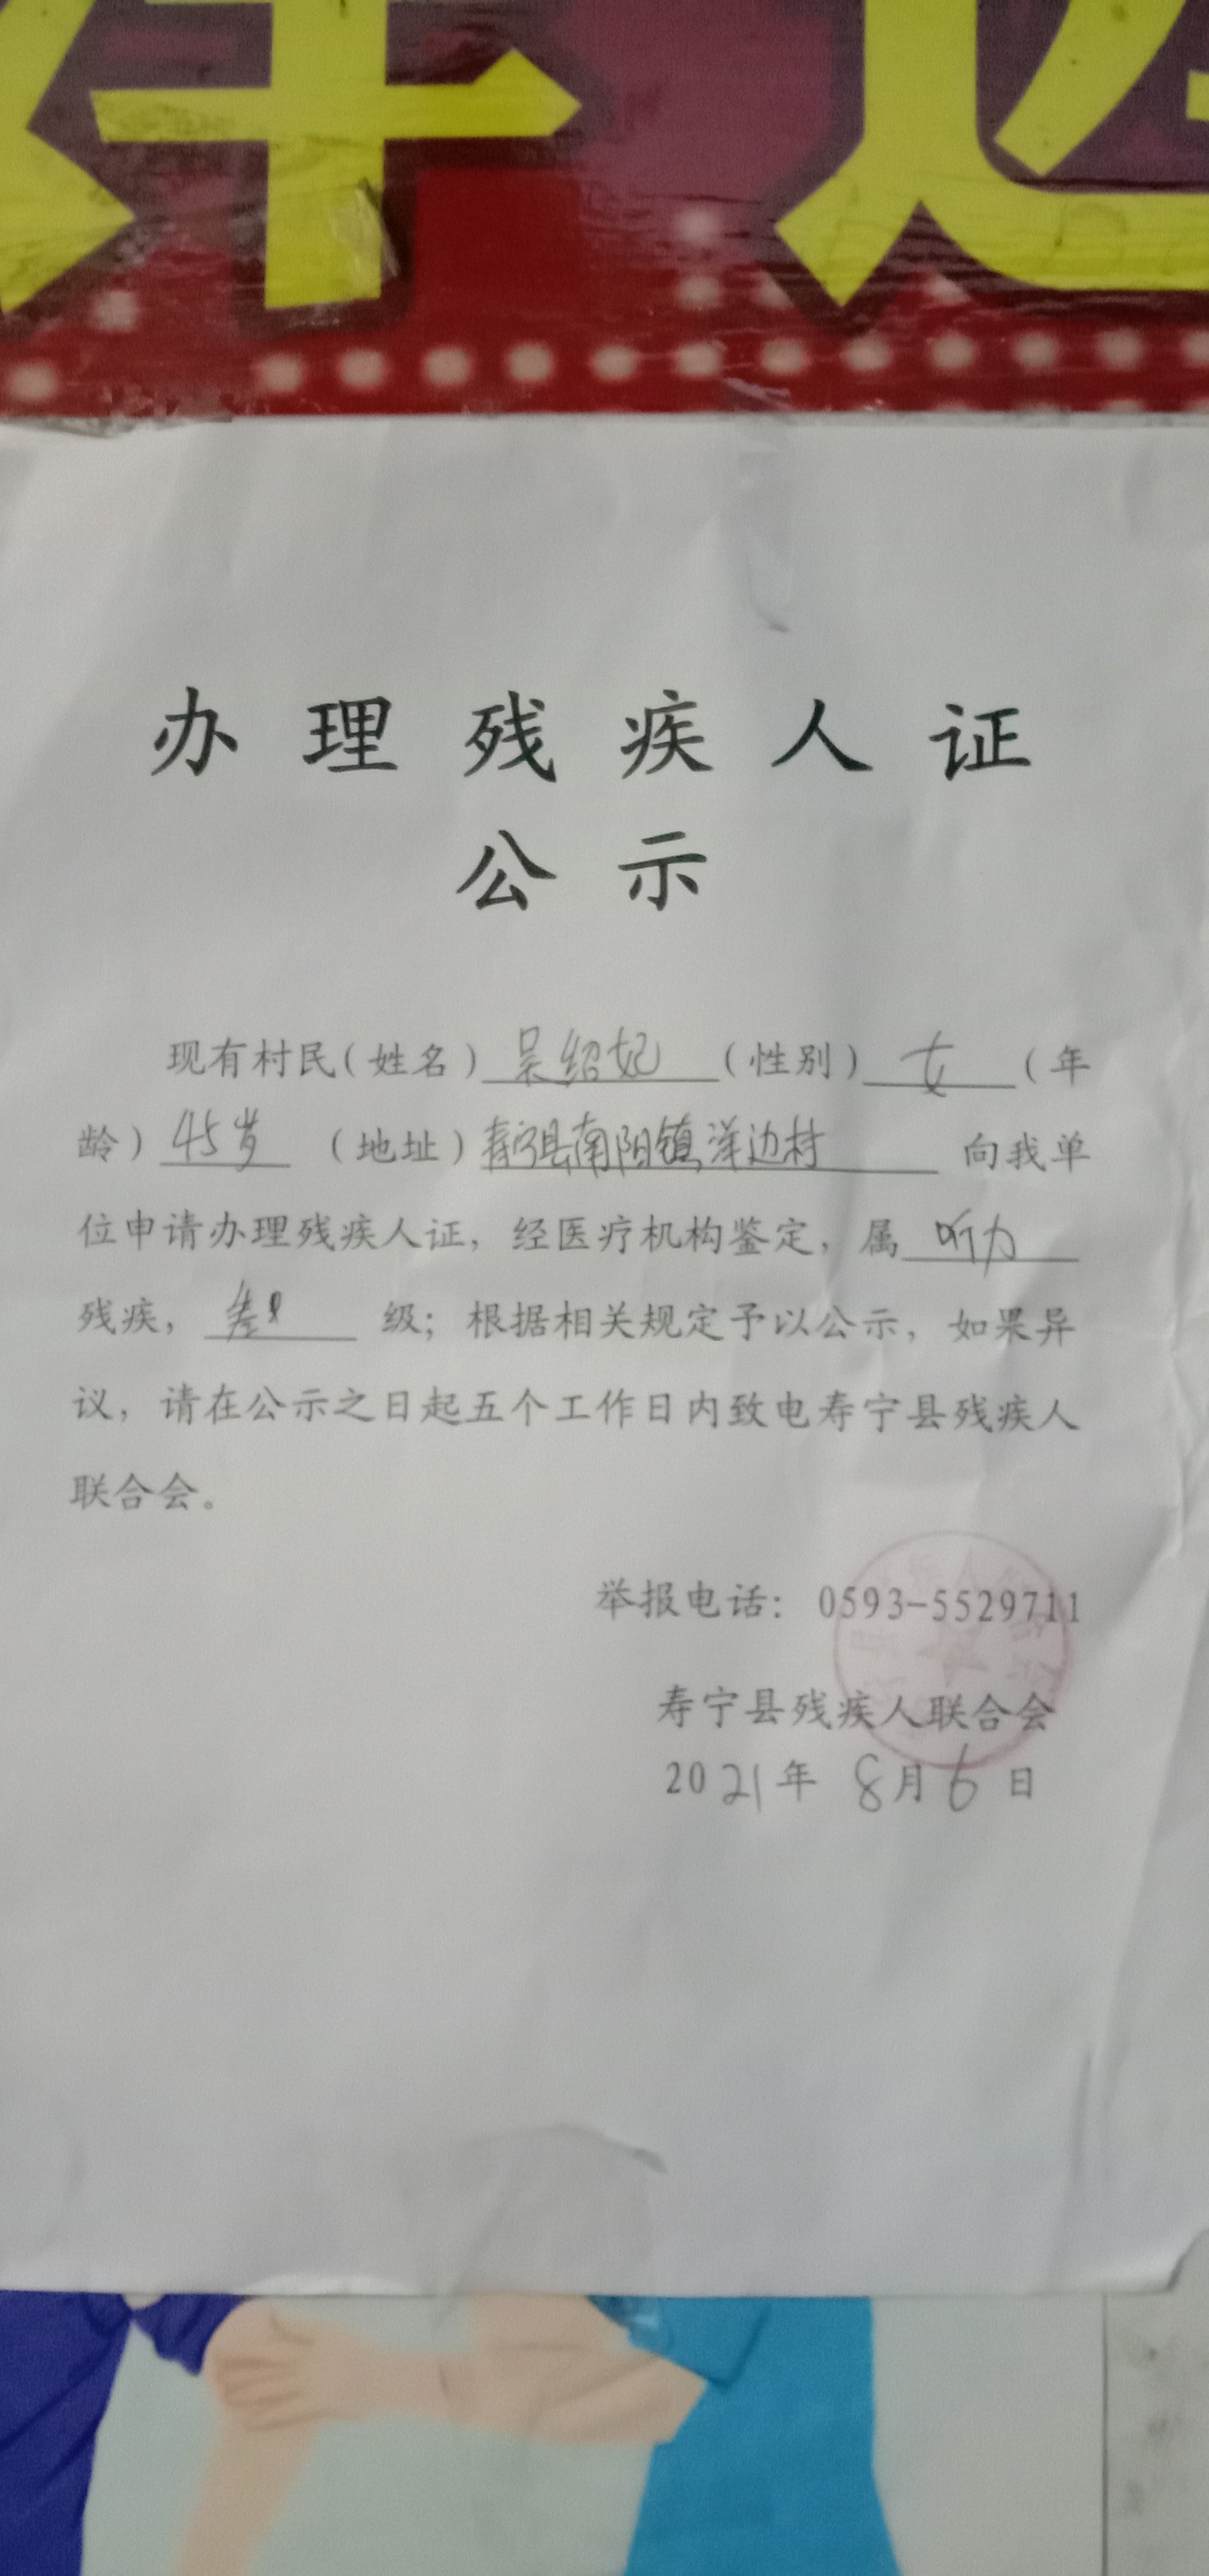 办理残疾人证
公示
现有村民(姓名)吴绍妃(性别)女(年
龄)45岁(地址)寿宁县南阳镇洋边村 向我单
位申请办理残疾人证，经医疗机构鉴定，属听力
残疾，叁级；根据相关规定予以公示，如果异
议，请在公示之日起五个工作日内致电寿宁县残疾人
联合会。
举报电话：0593-5529711
寿宁县残疾人联合会
2021年8月6日